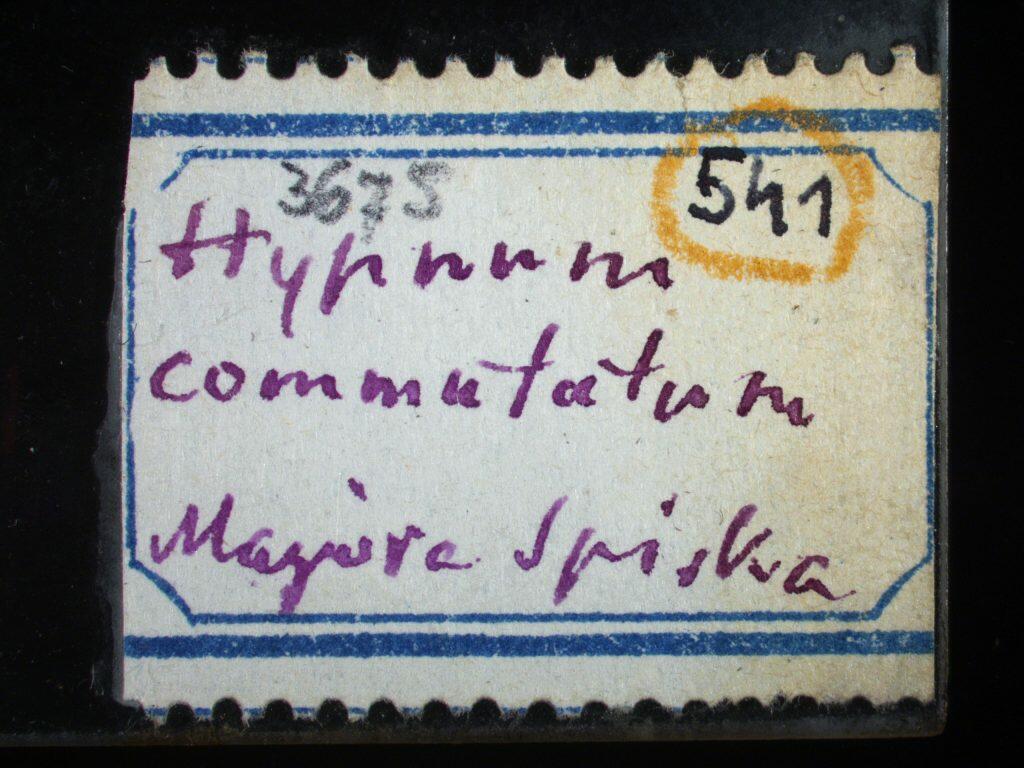 3675 541
Hypnum
commutatum
Magóra Spiska